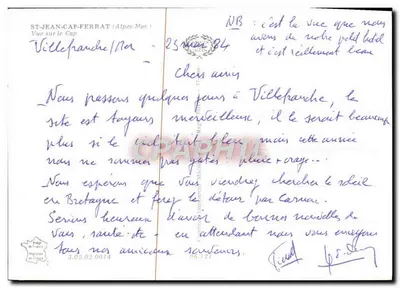 ST-JEAN-CAP-FERRAT (Alpes-Mar.)
Vue sur le Cap
NB : c'est la vue que nous
avons de notre petit hôtel
et c'est réellement beau
Villefranche/Mer - 23 mai 84
Chers amis
Nous passons quelques jours à Villefranche, le
site est toujours merveilleux, il le serait beaucoup
plus si le ciel était bleu, mais cette année
nous ne sommes pas gâtés pluie + orage...
Nous espérons que vous viendrez chercher le soleil
en Bretagne et ferez le détour par Carnac.
Serions heureux d'avoir de bonnes nouvelles de
vous, santé etc - en attendant nous vous envoyons
tous nos amicaux souvenirs.
3.05.02.0014